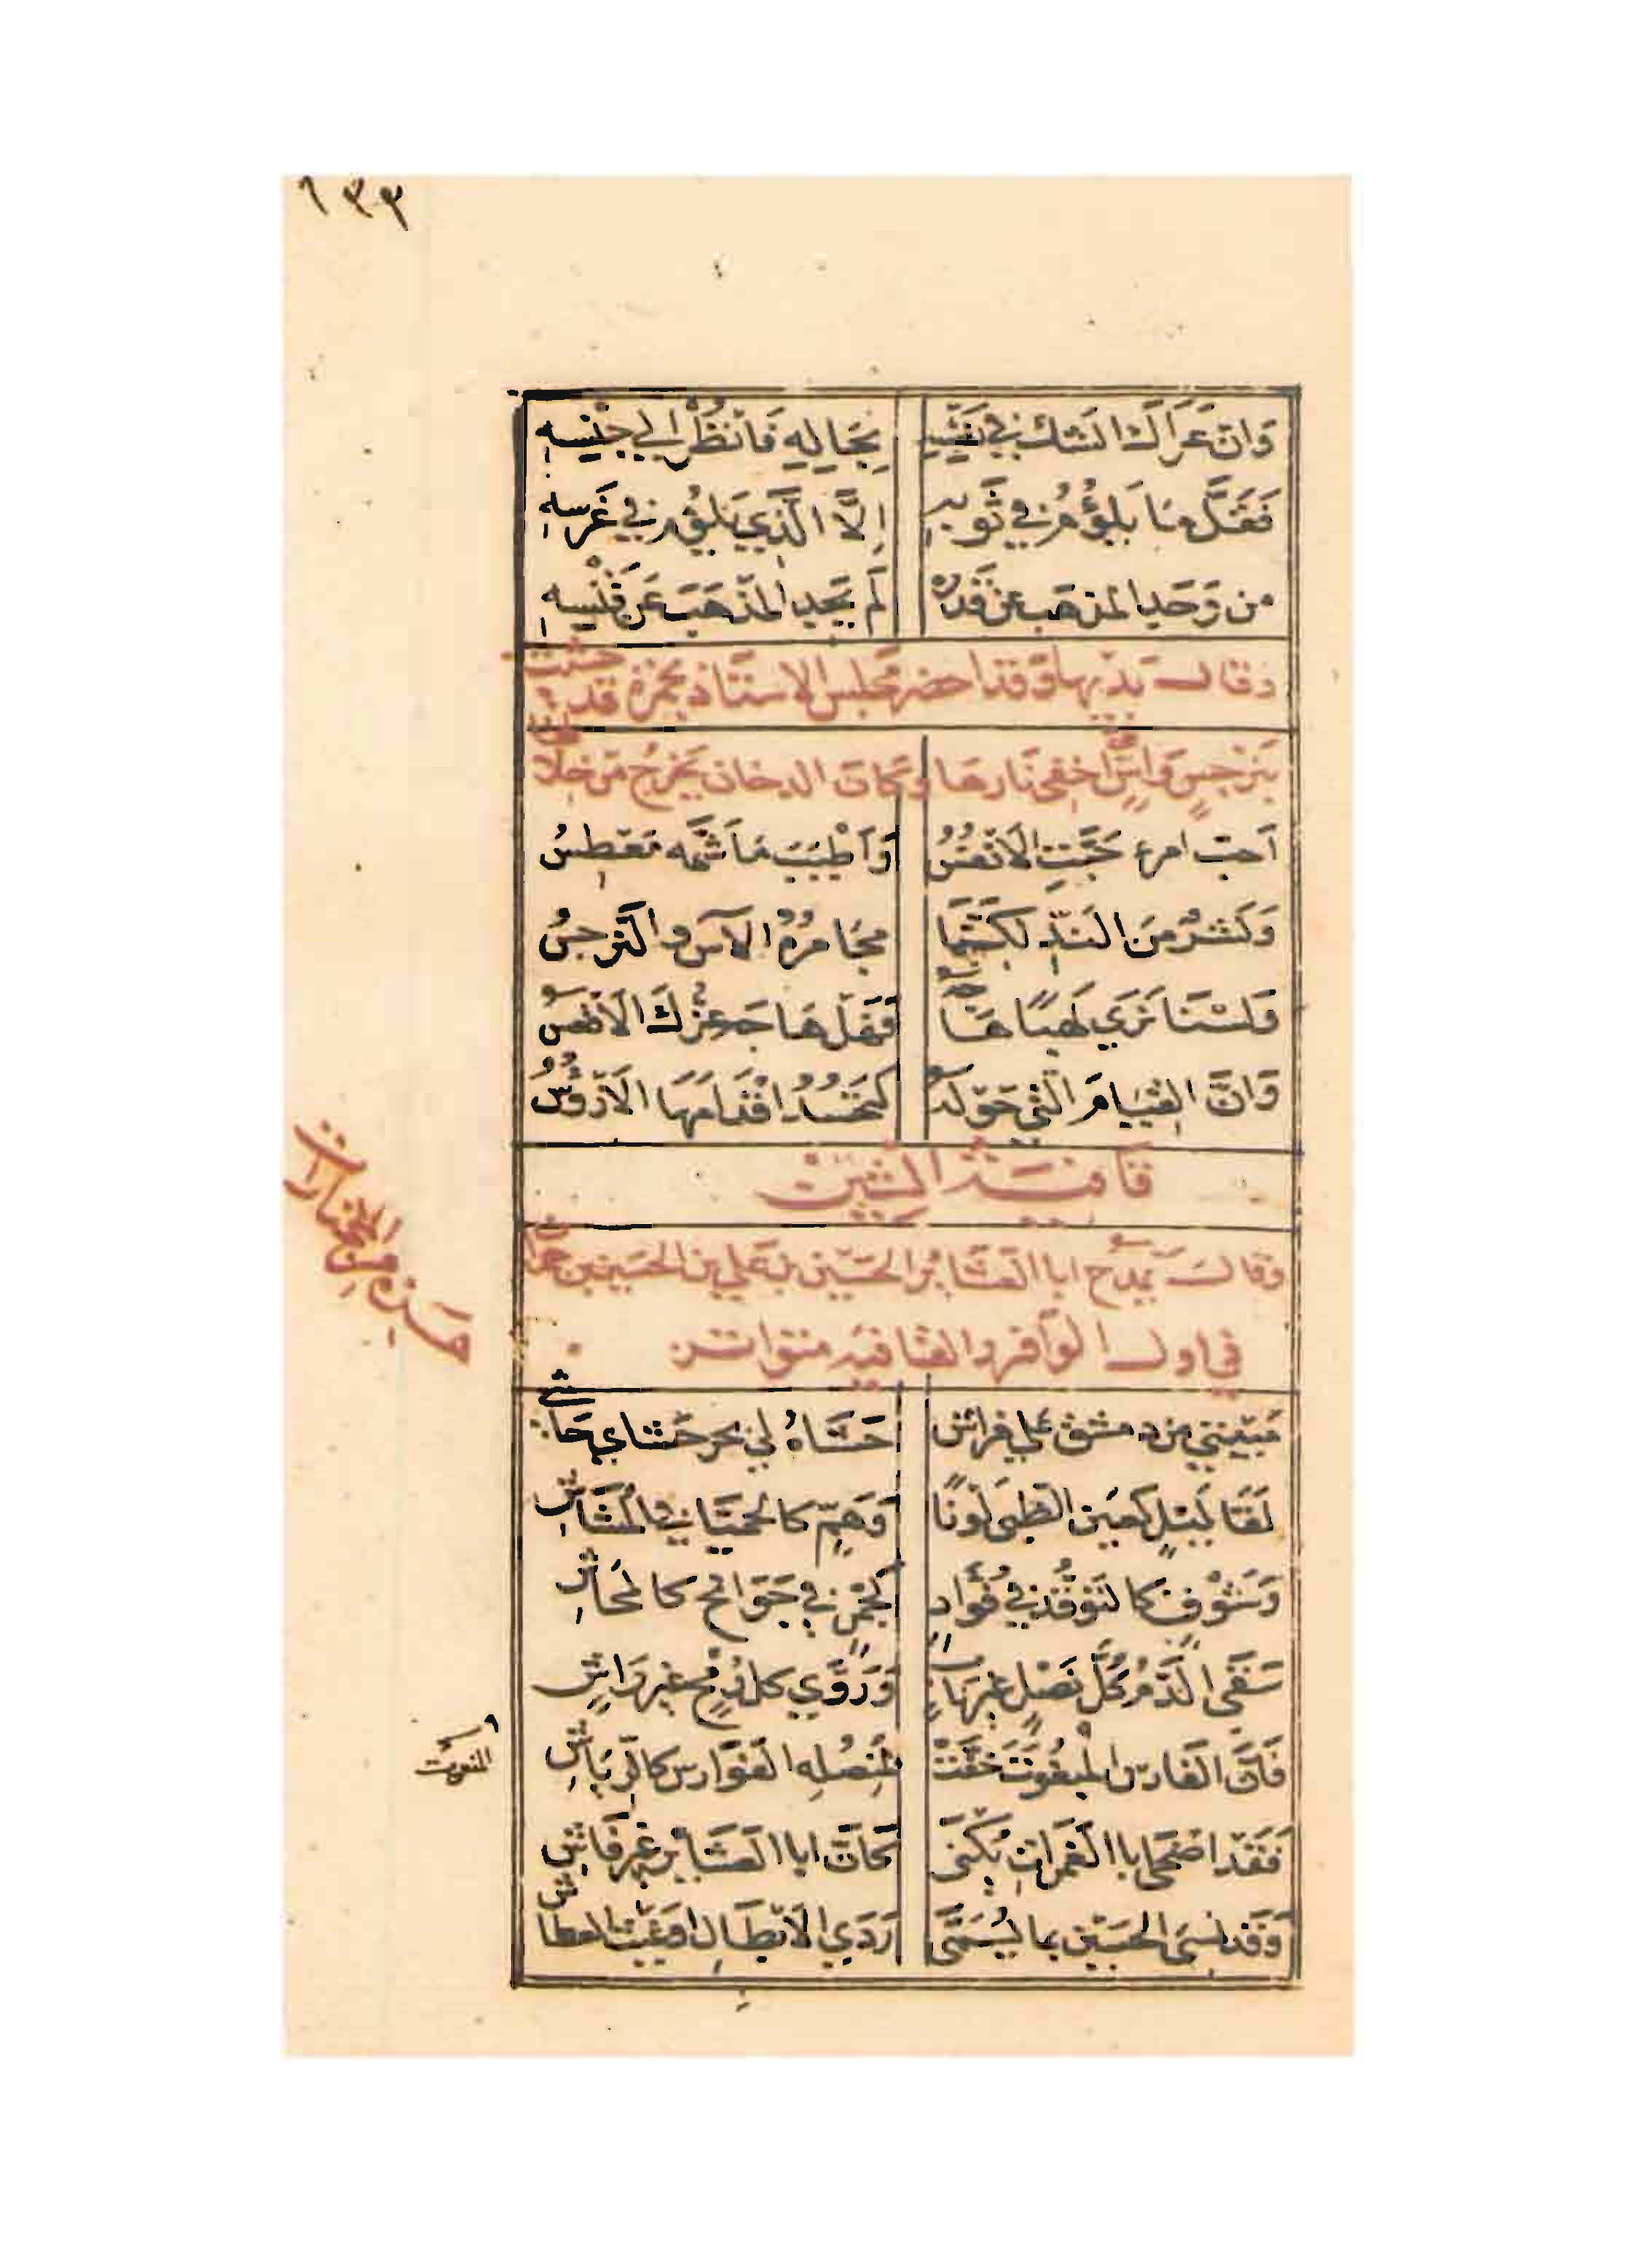 ١٣٣
وَان عَرَاكَ الشك في نَفْسِهِ بِحَالِهِ فَانْظُرْ الي جِنْسِهِ
فَقَلَّ مَا يَلؤُمُ في ثَوبِهِ اِلَّا الَّذِي يَلؤُم في غَرسِهِ
من وَجَدَ المذهَب عن قَدْرِه لَم يَجِدِ المذهَبَ عَن قَنْسِهِ
وقال بَديهاً وَقد احضر مجلس الاستاذ مجمرة قد حشيت
بنرجسٍ وَاسٍ اخفى نارها وكان الدخان يَخرج من خلال
اَحبّ امرء حَبَّتِ الاَنْفُسُ وَاَطْيَبَ مَا شَمَّه مَعْطِسُ
وَنَشرٌ مِنَ النَدِّ لكنّما مجَامرُهُ الآس والنرجسُ
وَلسْنَا نَرَي لَهَبًا هَاجَه فَهَل هَاجَه عِزّكَ الاَقْعَسُ
وَانَّ القِيَامَ التي حَوْلَه لتَحْسُدُ اَقْدَامَهَا الاَرْؤُسُ
قافية الشين
وقال يَمدَح ابا العَشَائر الحسَين بن عَلي بن الحسَين بن حمدان
في اول الوَافر والقافيَه متواتر
هذه من المختارات
مَبيتي من دمشق علي فراش حَشَاهُ لي بحر حَشَاي حَاش
لَقَا لَيْلٍ كَعَين الظبي لَوْنًا وَهَمٍّ كالحميّا في المُشَاشِ
وَشَوْقٍ كالتَوَقُّدِ في فُؤَادٍ كَجَمْرٍ في جَوَانحٍ كالمحَاشِ
سَقَى الدَّمُ كُلَّ نَصْلٍ غير نابٍ وَرَوَّي كل رُمْحٍ غير رَاشٍ
فَاِنَّ الفَارسَ المنْعُوتَ خَفَّتْ لمُنْصُلِه الفَوَارس كالرِّيَاشِ
المنعوت
فَقَد اضحى ابا الغَمَراتِ يُكْنَى كَاَنَّ ابا العَشَائر غير فَاشِ
وَقَد نُسيَ الحسَين بما يُسَمَّى رَدَي الاَبْطَالِ او غَيْث العطاش